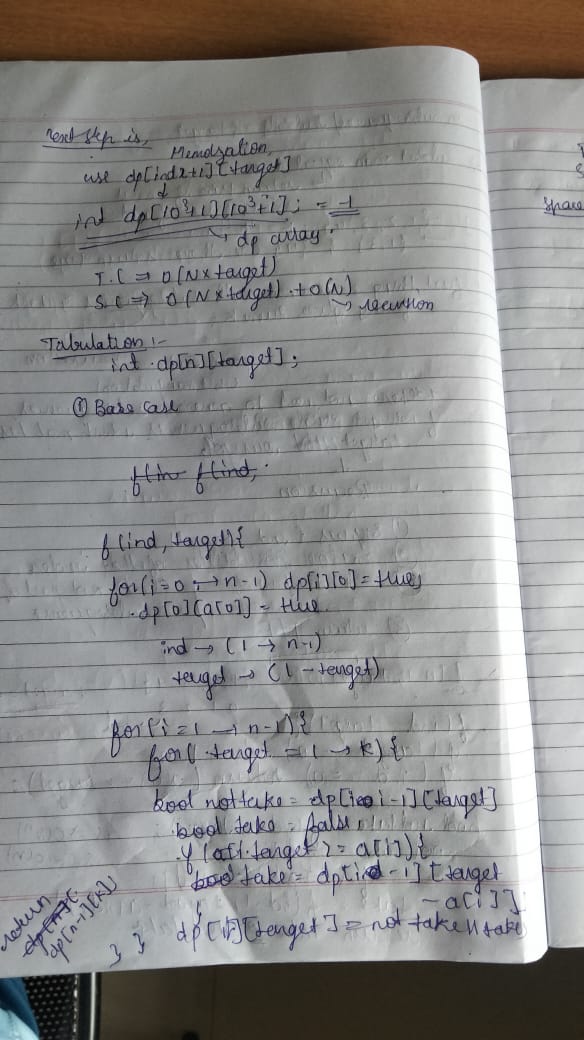 next step is,
Memoization,
use dp[indx+1][target]
int dp[10³+1][10³+1]; = -1
dp array.
T.C ⇒ O(N x target)
S.C ⇒ O(N x target) + O(N)
recursion
Tabulation :-
int dp[n][target];
① Base case
f(in f(ind,
f(ind, target){
for(i=0 → n-1) dp[i][0] = true;
dp[0][a[0]] = true
ind → (1 → n-1)
target → (1 - target)
for(i = 1 → n-1){
for( target = 1 → k){
bool nottake = dp[i-1][target]
bool take = false,
if (target >= a[i]){
take = dp[ind-1][target
- a[i]];
dp[i][target] = not take || take
} }
return
dp[n-1][k]
Space